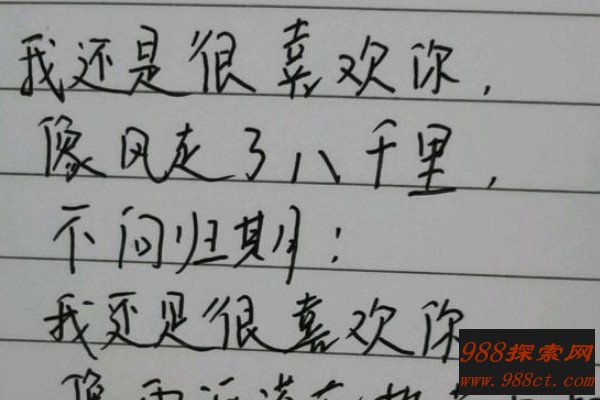 我还是很喜欢你，
像风走了八千里，
不问归期；
我还是很喜欢你
像雨
988探索网
www.988ct.com